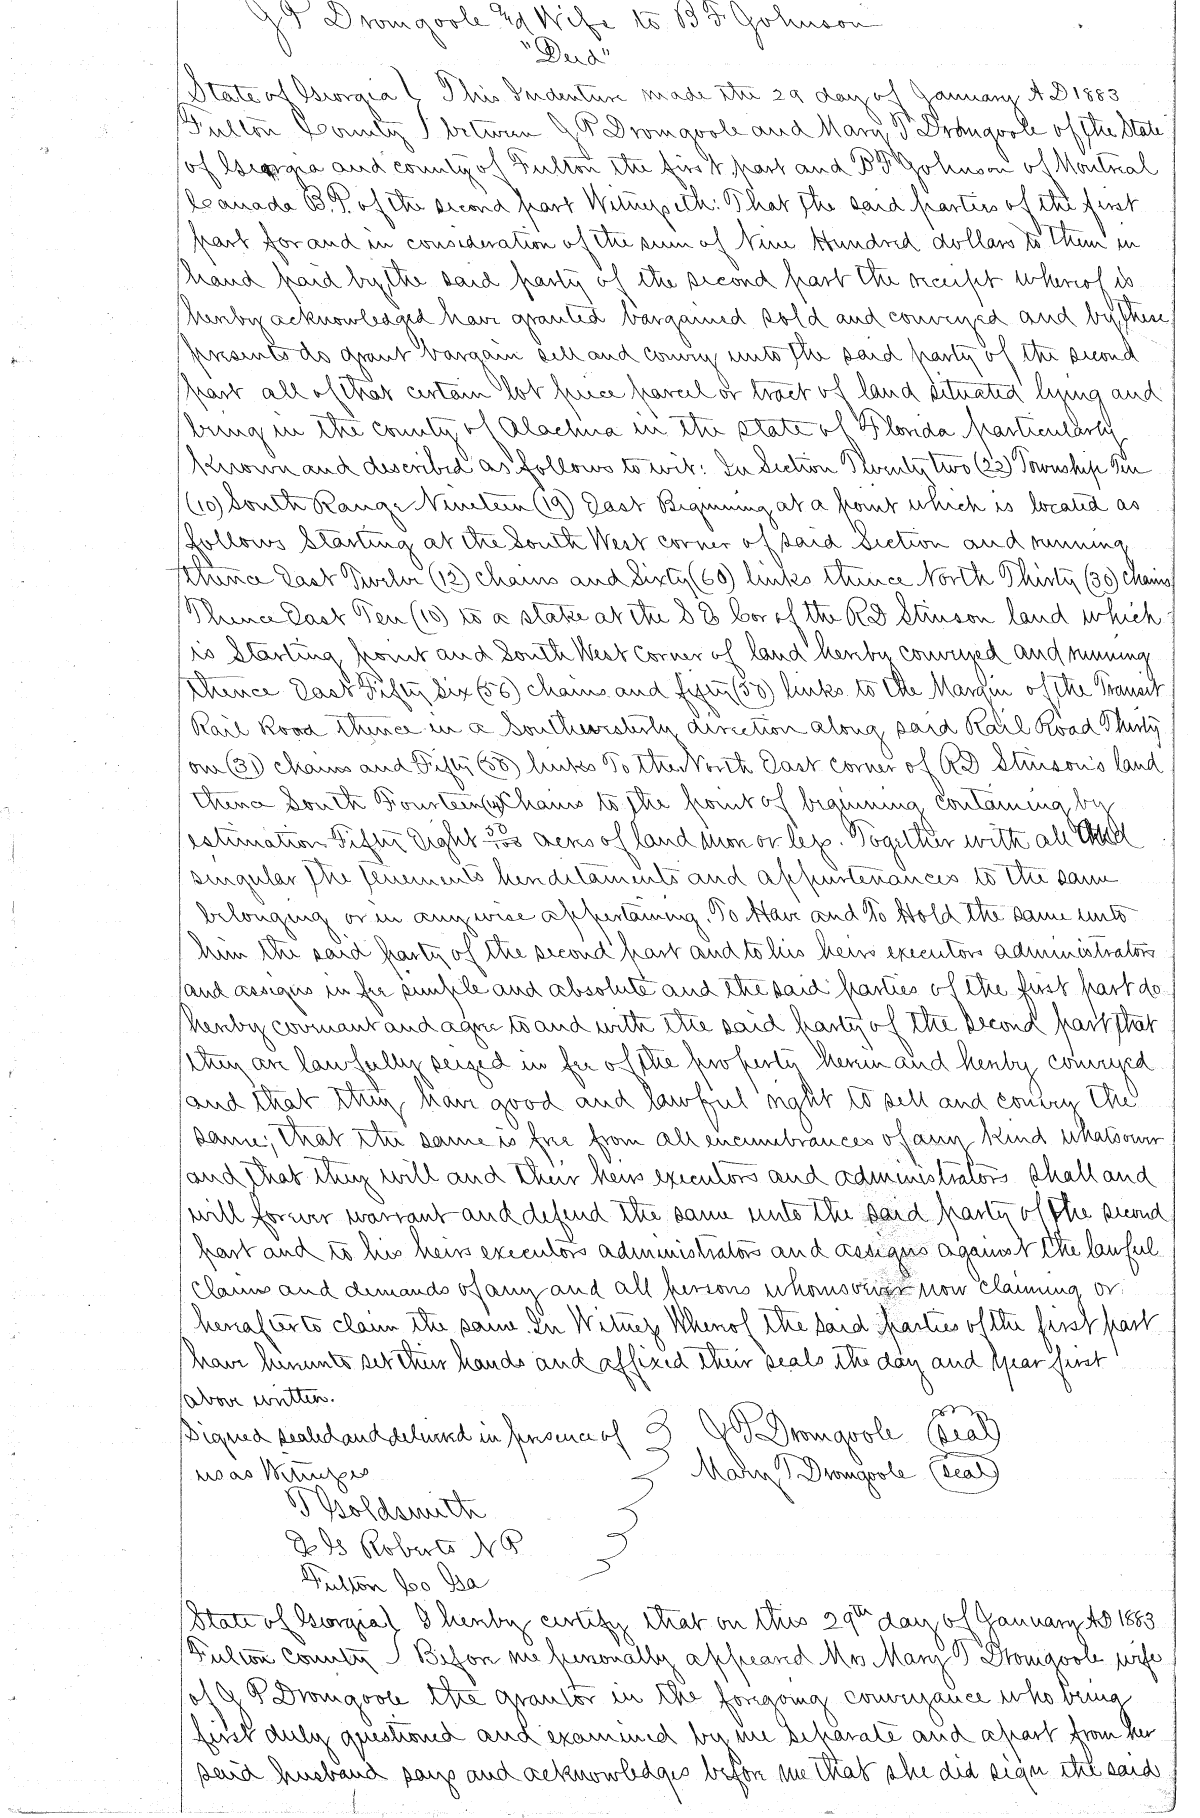 G P Dromgoole & Wife to B F Johnson
"Deed"
State of Georgia } This Indenture made the 29 day of January A D 1883
Fulton County } between G P Dromgoole and Mary T Dromgoole of the State
of Georgia and county of Fulton the first part and B F Johnson of Montreal
Canada B.P. of the second part Witnesseth: That the said parties of the first
part for and in consideration of the sum of Nine Hundred dollars to them in
hand paid by the said party of the second part the receipt whereof is
hereby acknowledged have granted bargained sold and conveyed and by these
presents do grant bargain sell and convey unto the said party of the second
part all of that certain lot piece parcel or tract of land situated lying and
being in the county of Alachua in the state of Florida particularly
known and described as follows to wit: In Section Twenty two (22) Township Ten
(10) South Range Nineteen (19) East Beginning at a point which is located as
follows Starting at the South West corner of said Section and running
thence East Twelve (12) chains and Sixty (60) links thence North Thirty (30) chains
Thence East Ten (10) to a stake at the S E Cor of the R D Stinson land which
is Starting point and South West Corner of land hereby conveyed and running
thence East Fifty Six (56) chains and fifty (50) links to the Margin of the Transit
Rail Road thence in a Southwesterly direction along said Rail Road Thirty
one (31) chains and Fifty (50) links To the North East corner of R D Stinson's land
thence South Fourteen (14) Chains to the point of beginning containing by
estimation Fifty Eight 50/100 acres of land more or less. Together with all and
singular the tenements hereditaments and appurtenances to the same
belonging or in anywise appertaining. To Have and To Hold the same unto
him the said party of the second part and to his heirs executors administrators
and assigns in fee simple and absolute and the said parties of the first part do
hereby covenant and agree to and with the said party of the second part that
they are lawfully seized in fee of the property herein and hereby conveyed
and that they have good and lawful right to sell and convey the
same; that the same is free from all encumbrances of any kind whatsoever
and that they will and their heirs executors and administrators shall and
will forever warrant and defend the same unto the said party of the second
part and to his heirs executors administrators and assigns against the lawful
claims and demands of any and all persons whomsoever now claiming or
hereafter to claim the same. In Witness Whereof the said parties of the first part
have hereunto set their hands and affixed their seals the day and year first
above written.
Signed sealed and delivered in presence of } G P Dromgoole (Seal)
us as Witnesses } Mary T Dromgoole (Seal)
T Goldsmith
Roberts N P
Fulton Co Ga
State of Georgia } I hereby certify that on this 29th day of January A D 1883
Fulton County } Before me personally appeared Mrs Mary T Dromgoole wife
of G P Dromgoole the grantor in the foregoing conveyance who being
first duly questioned and examined by me separate and apart from her
said husband says and acknowledges before me that she did sign the said